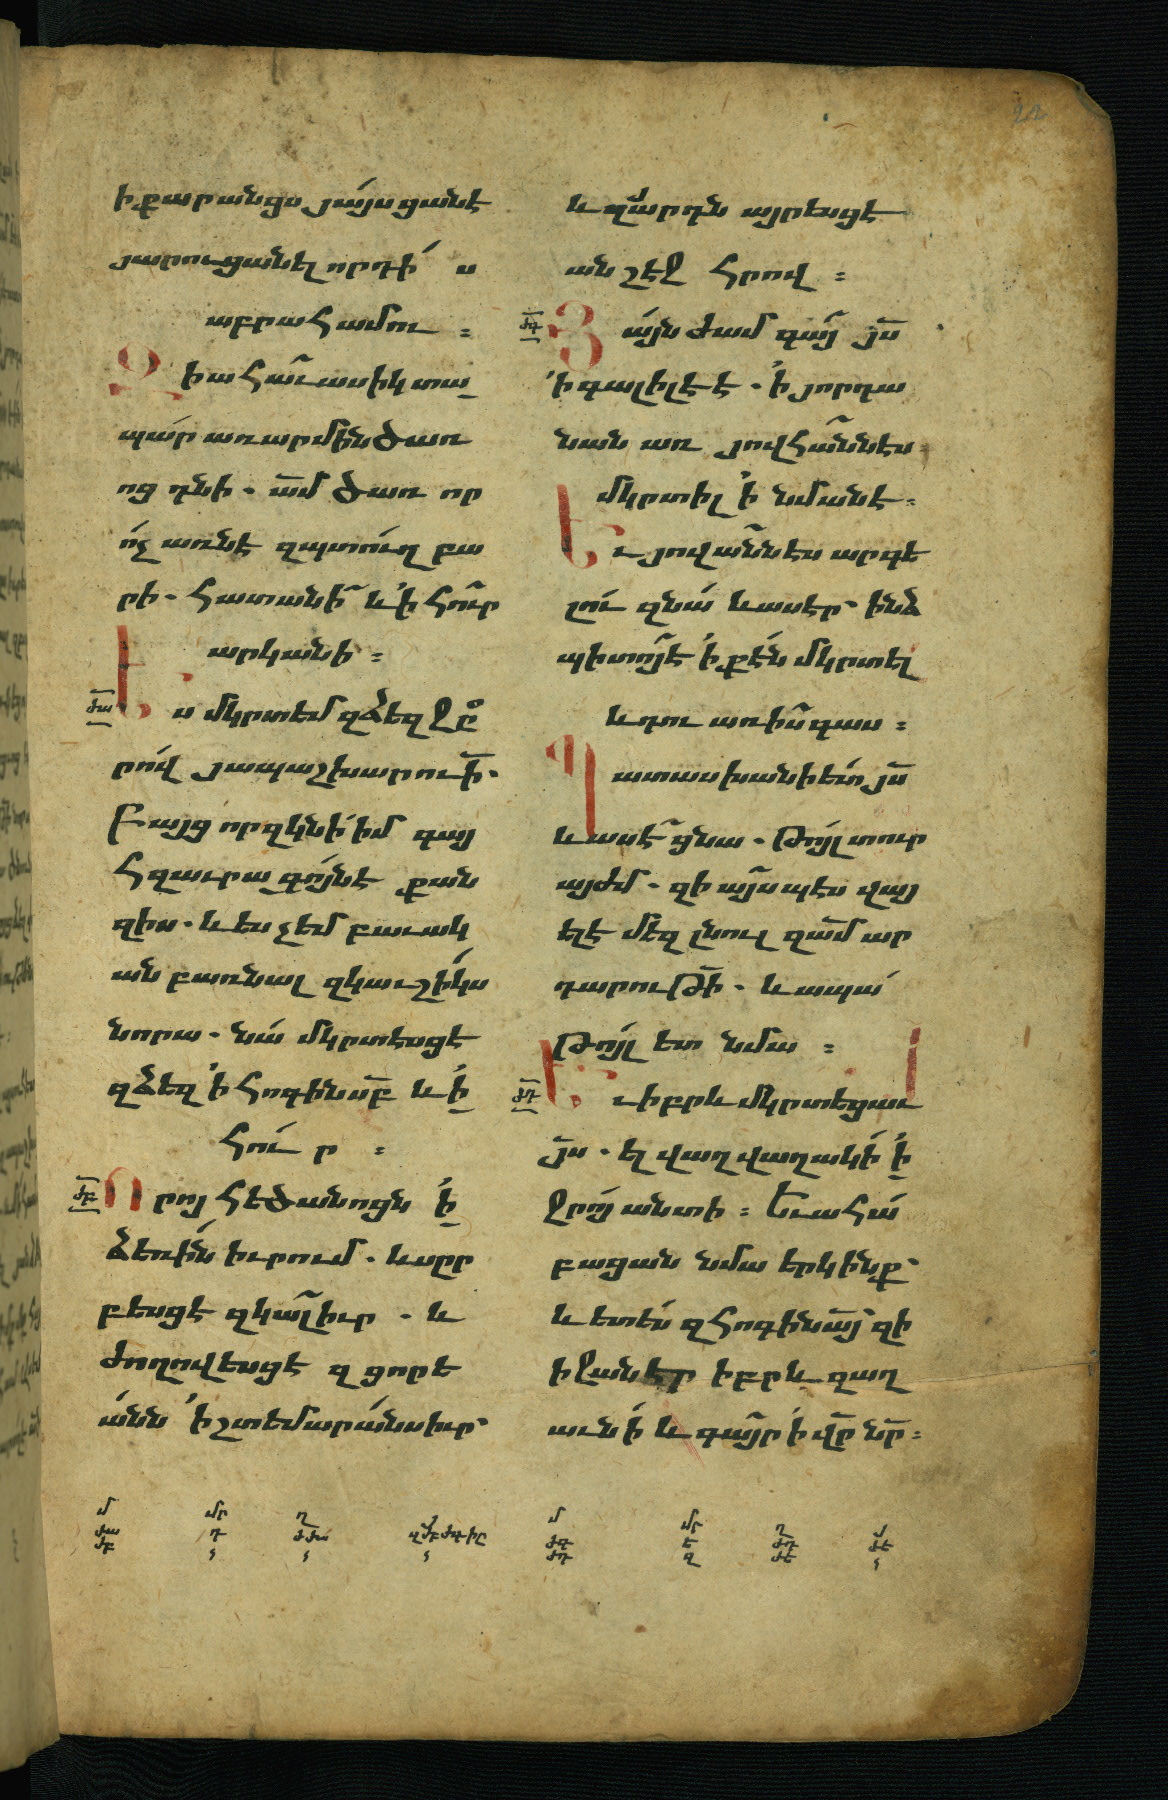 ի քարանցս յայսցանէ
յարուցանել որդի ս
աբրահամու ։
Զի ահաւասիկ տա
պար առ արմին ծառ
ոց դնի . ամ ծառ որ
ոչ առնէ զպտուղ բա
րի . հատանի և ի հուր
արկանի ։
ԺԱ
Ես մկրտեմ զձեզ ջր
րով յապաշխարուի .
Բայց որ զկնի իմ գայ
հզաւրագոյն է քան
զիս . և ես չեմ բաւակ
ան բառնալ զկաւշիկս
նորա . նա մկրտեսցէ
զձեզ ի հոգին սբ և ի
հուր ։
ԺԲ
Որոյ հեծանոցն ի
ձեռին իւրում . և սրր
բեսցէ զկալ իւր . և
ժողովեսցէ զցորե
անն ի շտեմարանս իւր
և զյարդն այրեսցէ
անշէջ հրով ։
ԺԳ
Յայնժամ գայ յս
ի գալիլեէ . ի յորդա
նան առ յովհաննէս
մկրտիլ ի նմանէ ։
Եւ յովաննէս արգե
լու զնա և ասէր ինձ
պիտոյ է ի քէն մկրտել
և դու առ իս գաս ։
Պատասխանի ետ յս
և ասէ ցնա . Թոյլ տուր
այժմ . զի այսպէս վայ
ելէ մեզ լնուլ զամ ար
դարութի . և ապա
թոյլ ետ նմա ։
ԺԴ
Եւ իբրև մկրտեցաւ
յս . ել վաղվաղակի ի
ջրոյ անտի ։ Եւ ահա
բացան նմա երկինք
և ետես զհոգին այ զի
իջանէր իբրև զաղ
աւնի և գայր ի վր նր ։
մ մր ղ յ
ժա դ
ժբ
մ մր ղ յ
ժգ ե ժդ ժե
ժդ զ ժե